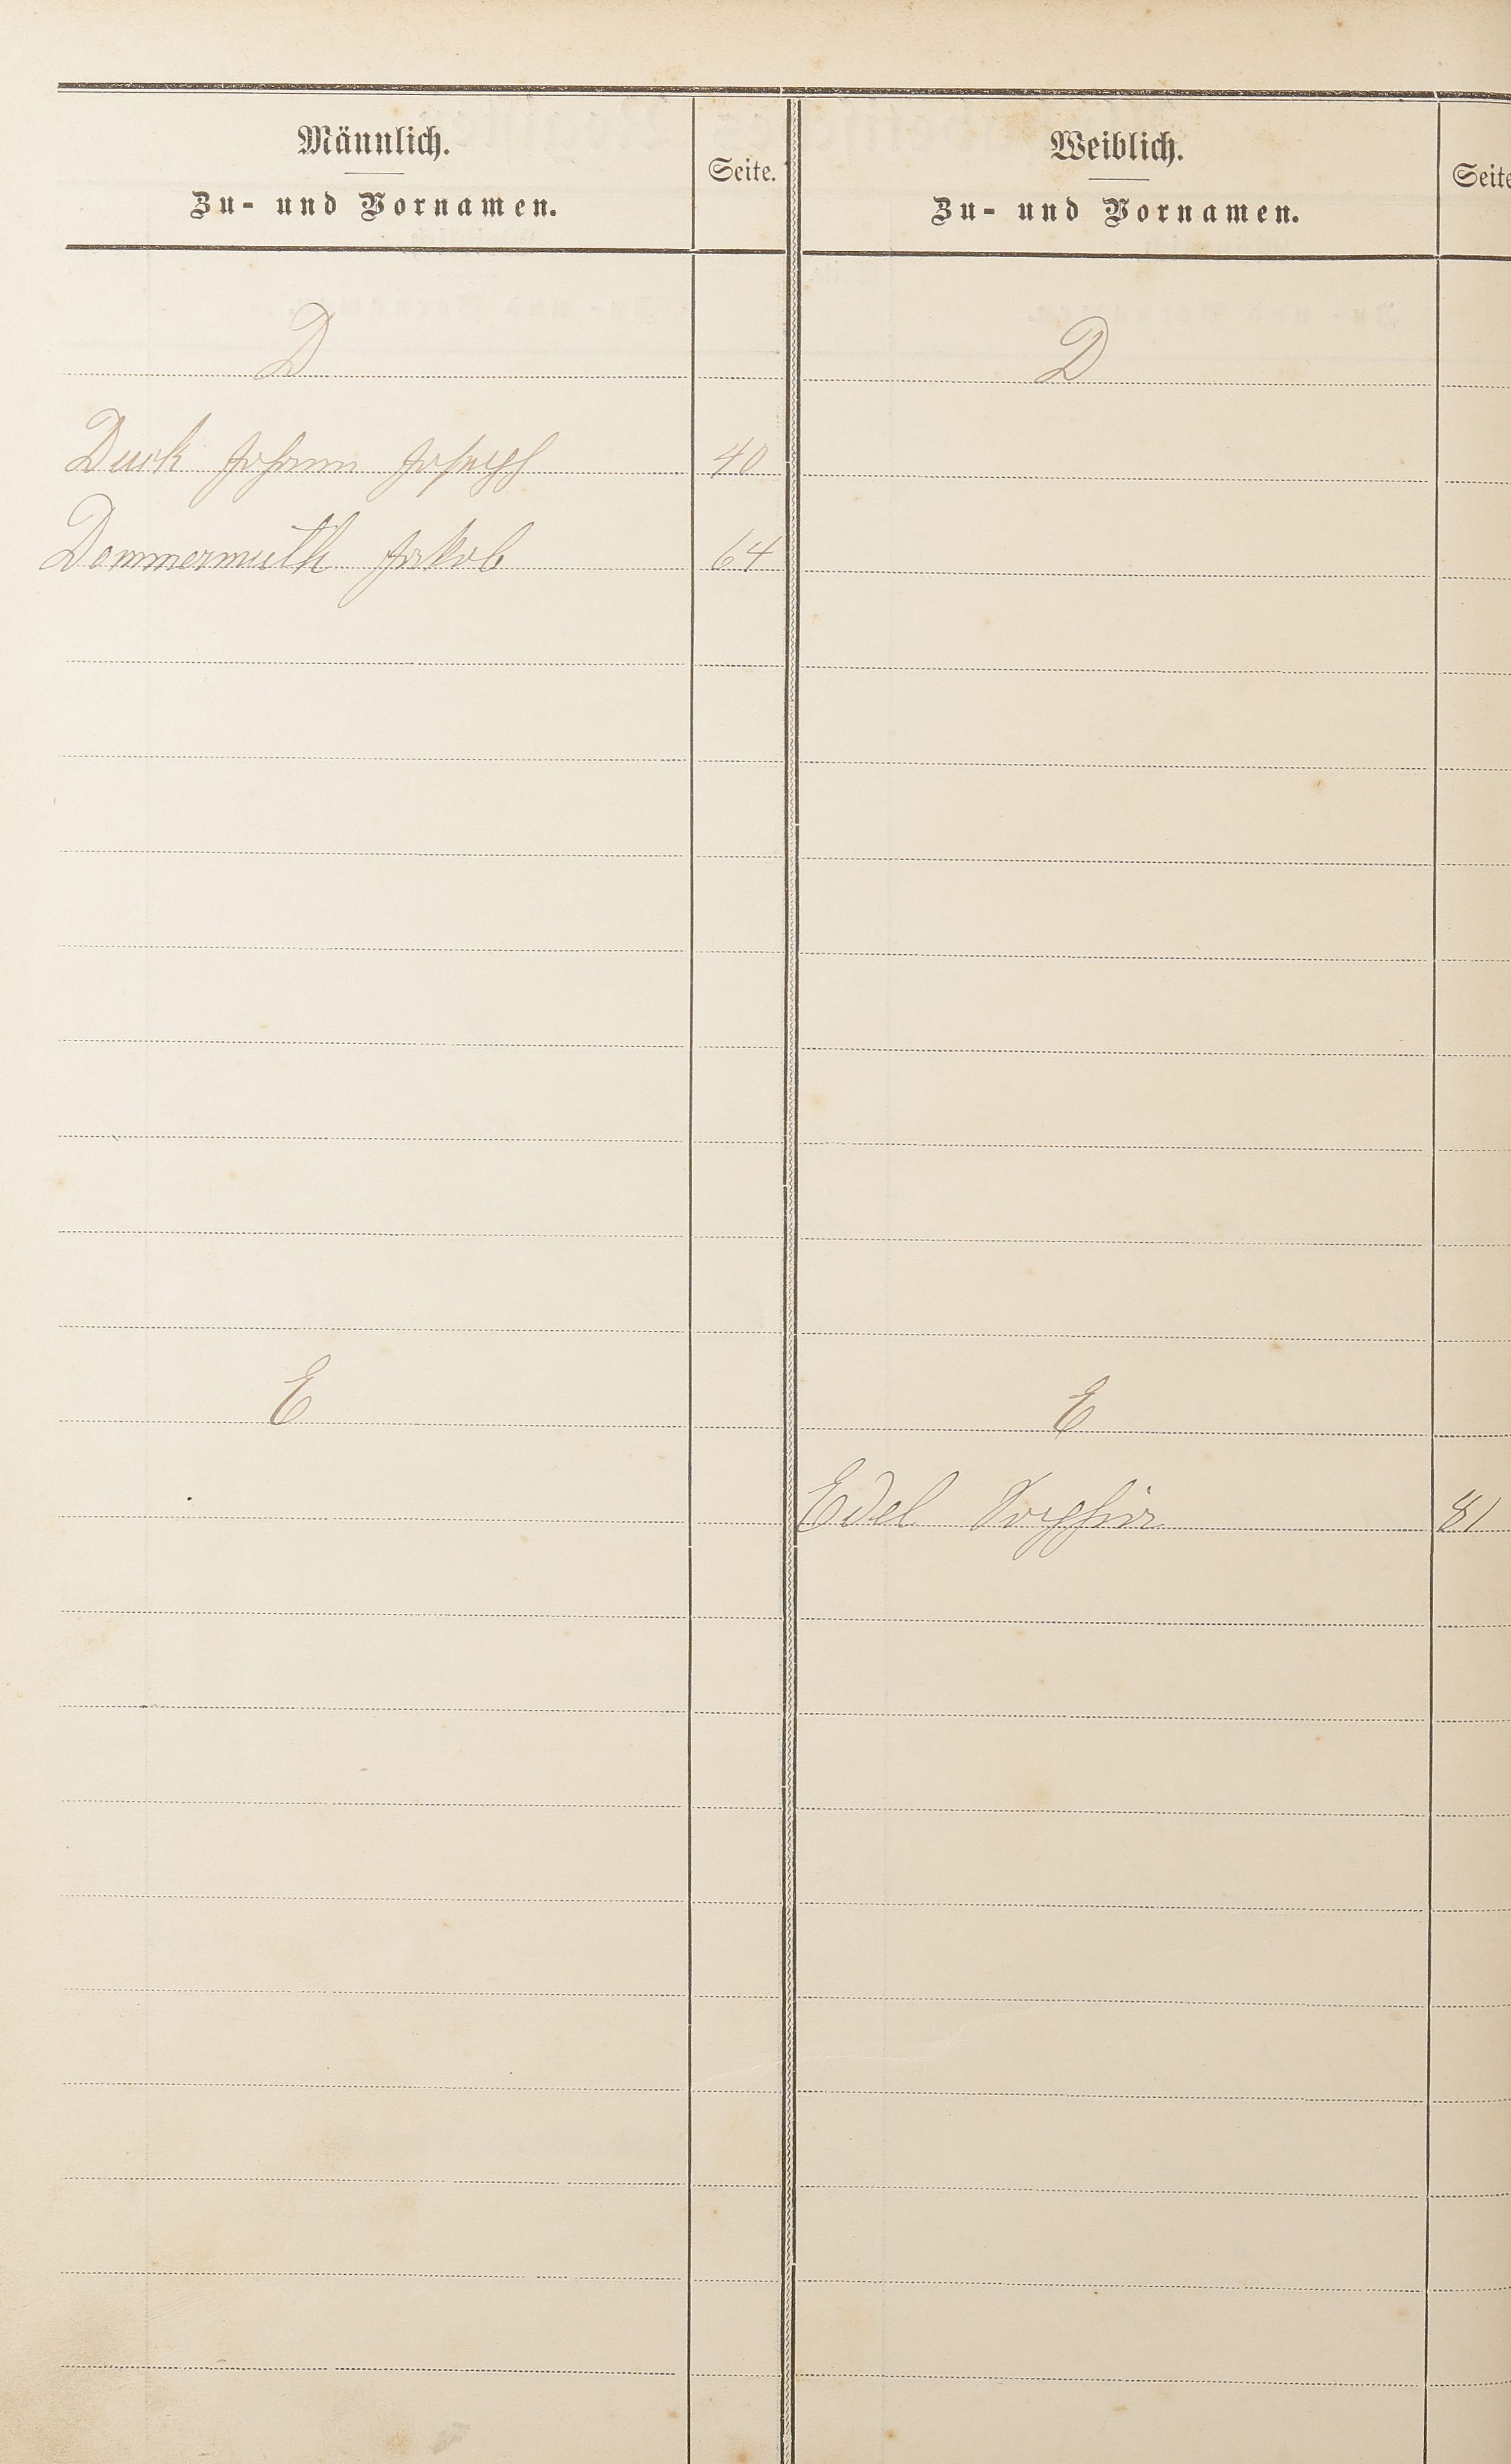 Männlich.
Zu- und Vornamen.
Seite.
Weiblich.
Zu- und Vornamen.
Seite
D
D
Duck Johann Joseph 40
Dommermuth Jakob 64
E
E
Edel Sophia 81